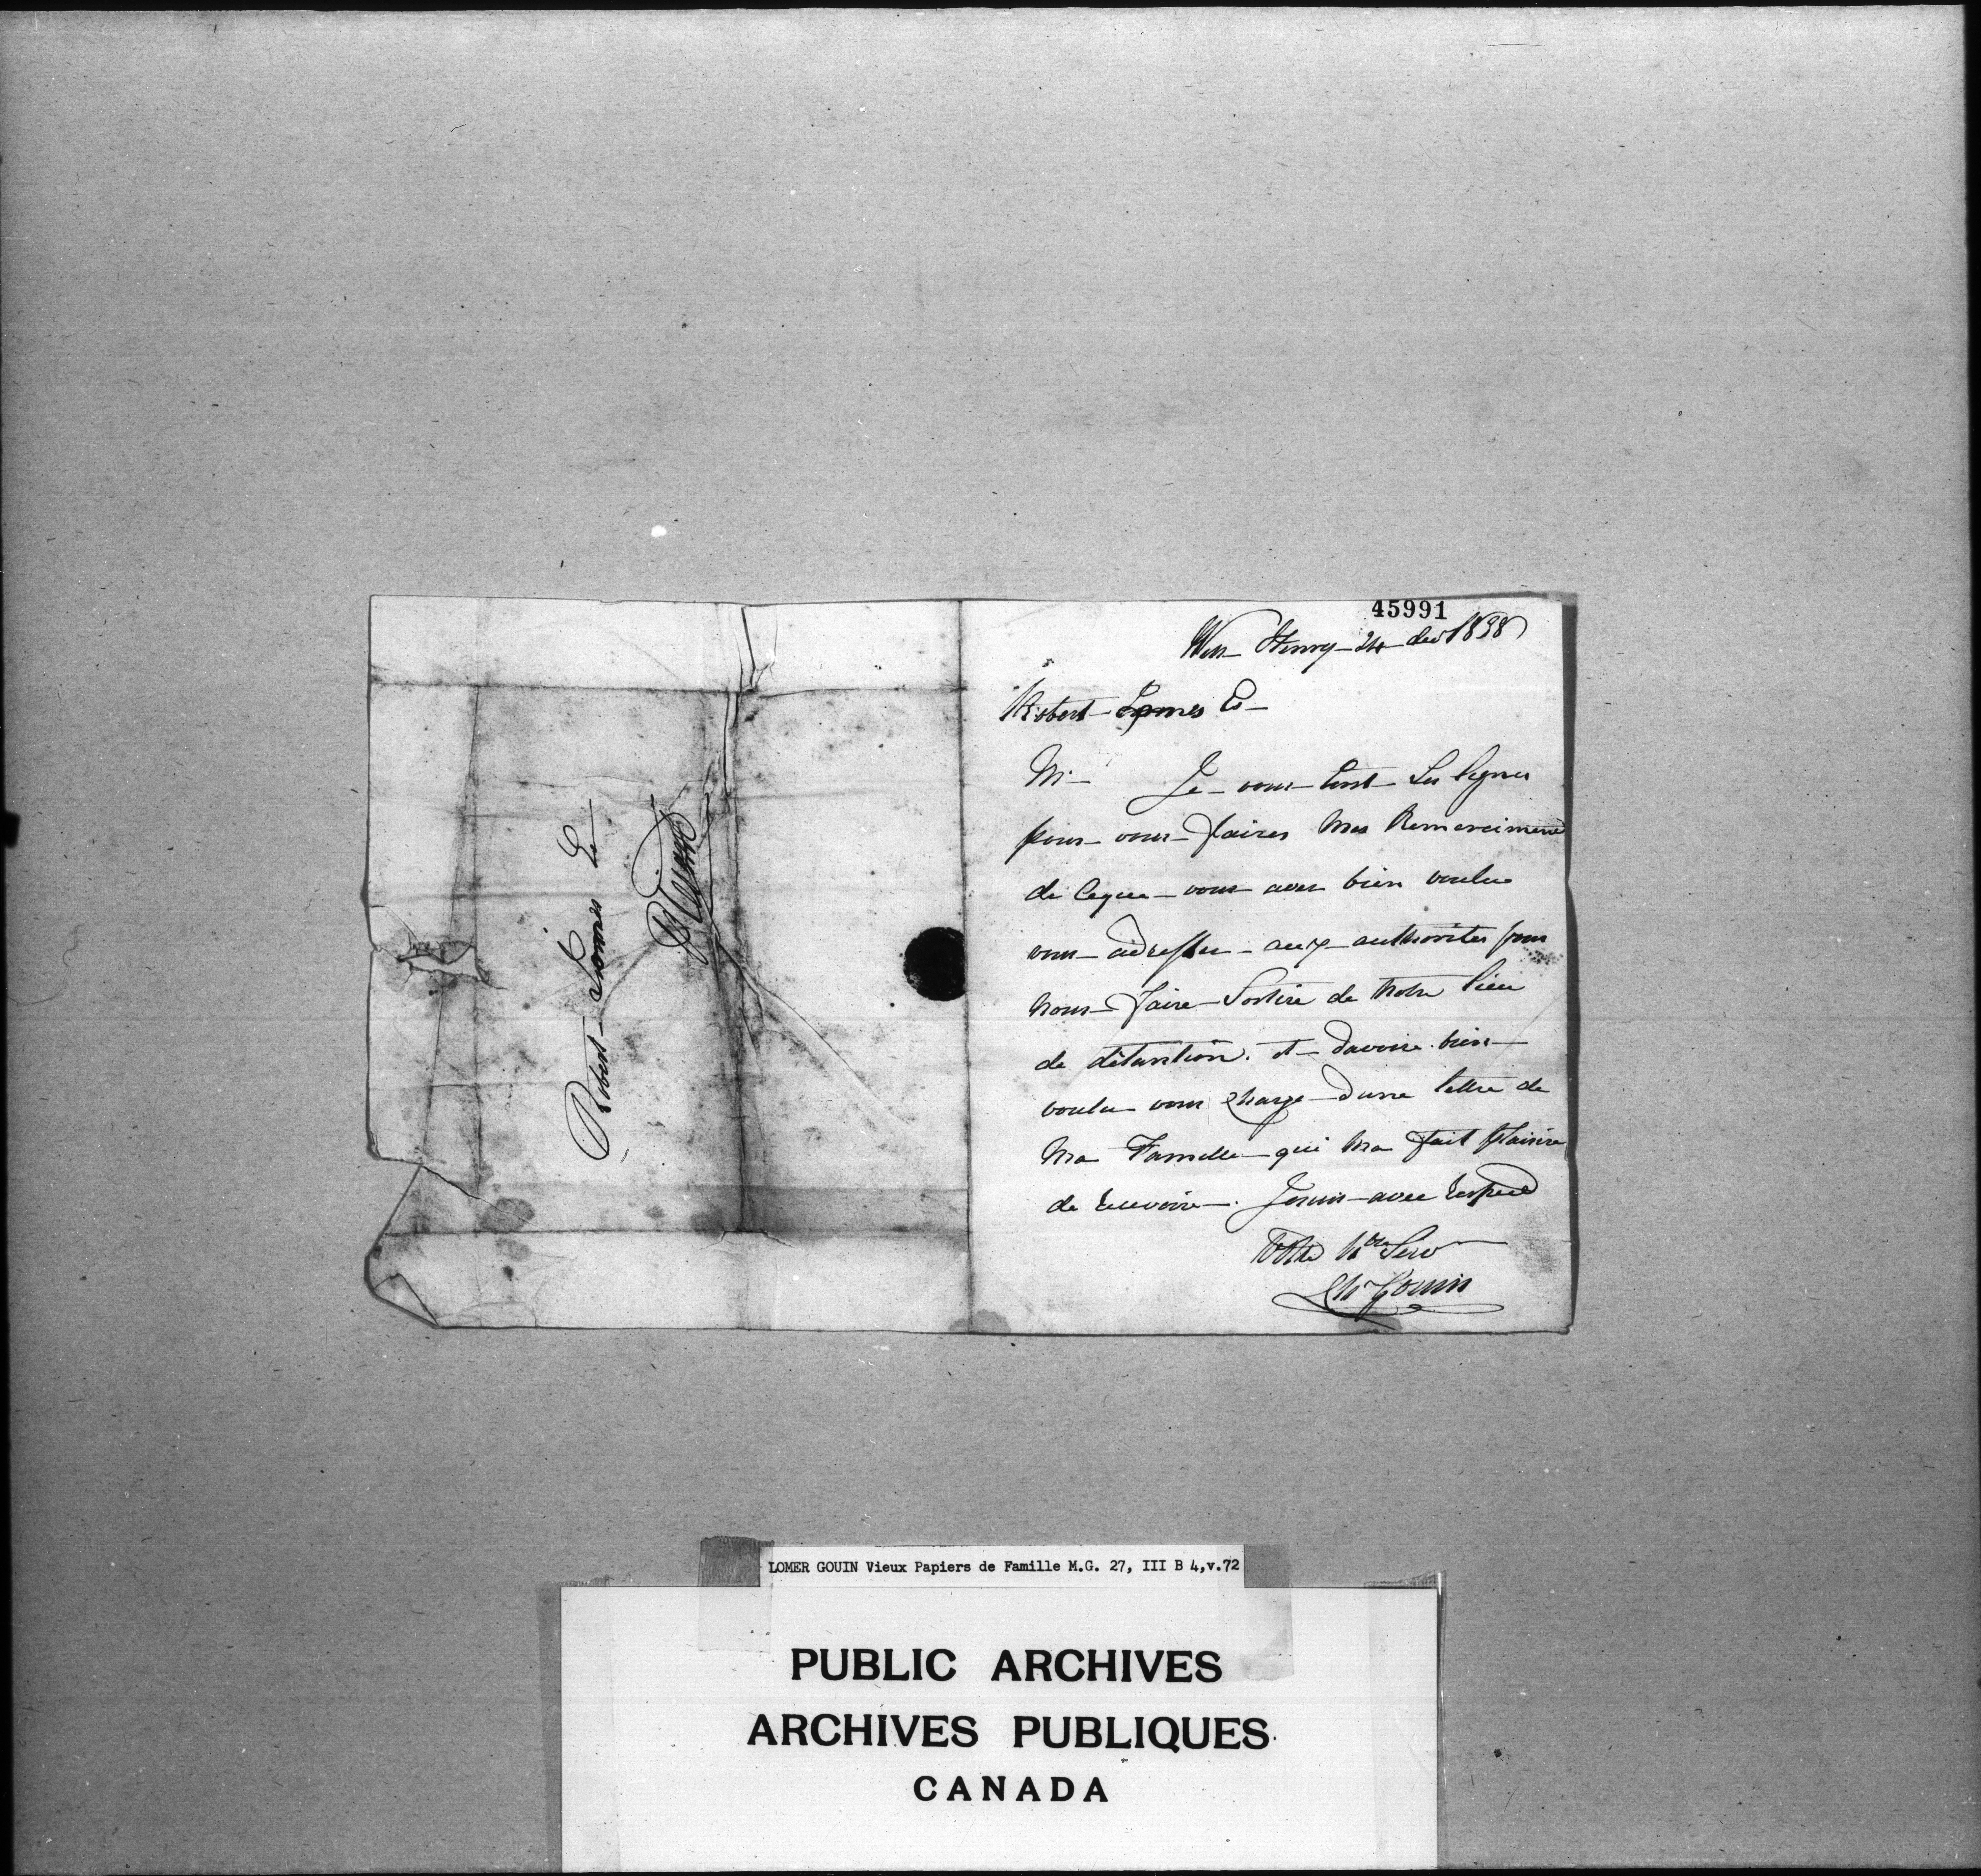 Robert Lomes Er
45991
Wm Henry 24 dec 1838
Robert Lomes Er
Mr Je vous Ecrit Ses lignes
pour vous faires mes Remercimens
de Ceque vous avez bien voulue
vous adresser aux authorites pour
nous faire Sortire de notre lieu
de détantion. et davoire bien
voulu vous charge dune lettre de
ma Famille qui ma fait plaisire
de recevoire. Jesuis avec respect
Votre Serv
Chs Gouin
LOMER GOUIN Vieux Papiers de Famille M.G. 27, III B 4,v.72
PUBLIC ARCHIVES
ARCHIVES PUBLIQUES
CANADA